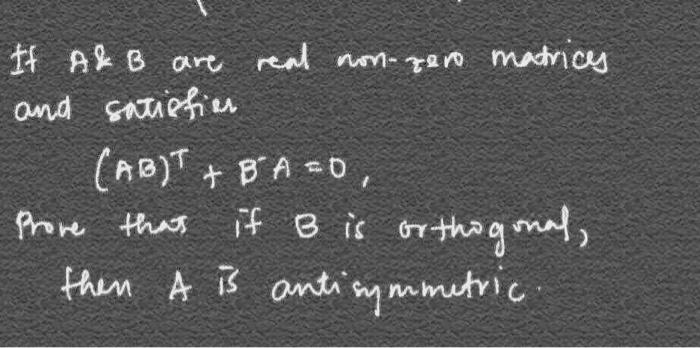 If A & B are real non-zero matrices
and satisfies
(AB)ᵀ + B⁻A = 0,
Prove that if B is orthogonal,
then A is antisymmetric.